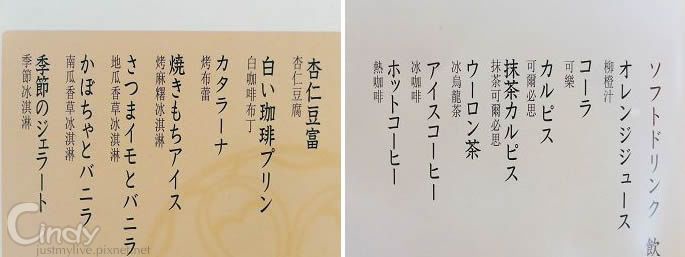 杏仁豆富
杏仁豆腐
白い珈琲プリン
白咖啡布丁
カタラーナ
烤布蕾
焼きもちアイス
烤麻糬冰淇淋
さつまイモとバニラ
地瓜香草冰淇淋
かぼちゃとバニラ
南瓜香草冰淇淋
季節のジェラート
季節冰淇淋
Cindy
justmylive.pixnet.net
ソフトドリンク 飲
オレンジジュース
柳橙汁
コーラ
可樂
カルピス
可爾必思
抹茶カルピス
抹茶可爾必思
ウーロン茶
冰烏龍茶
アイスコーヒー
冰咖啡
ホットコーヒー
熱咖啡